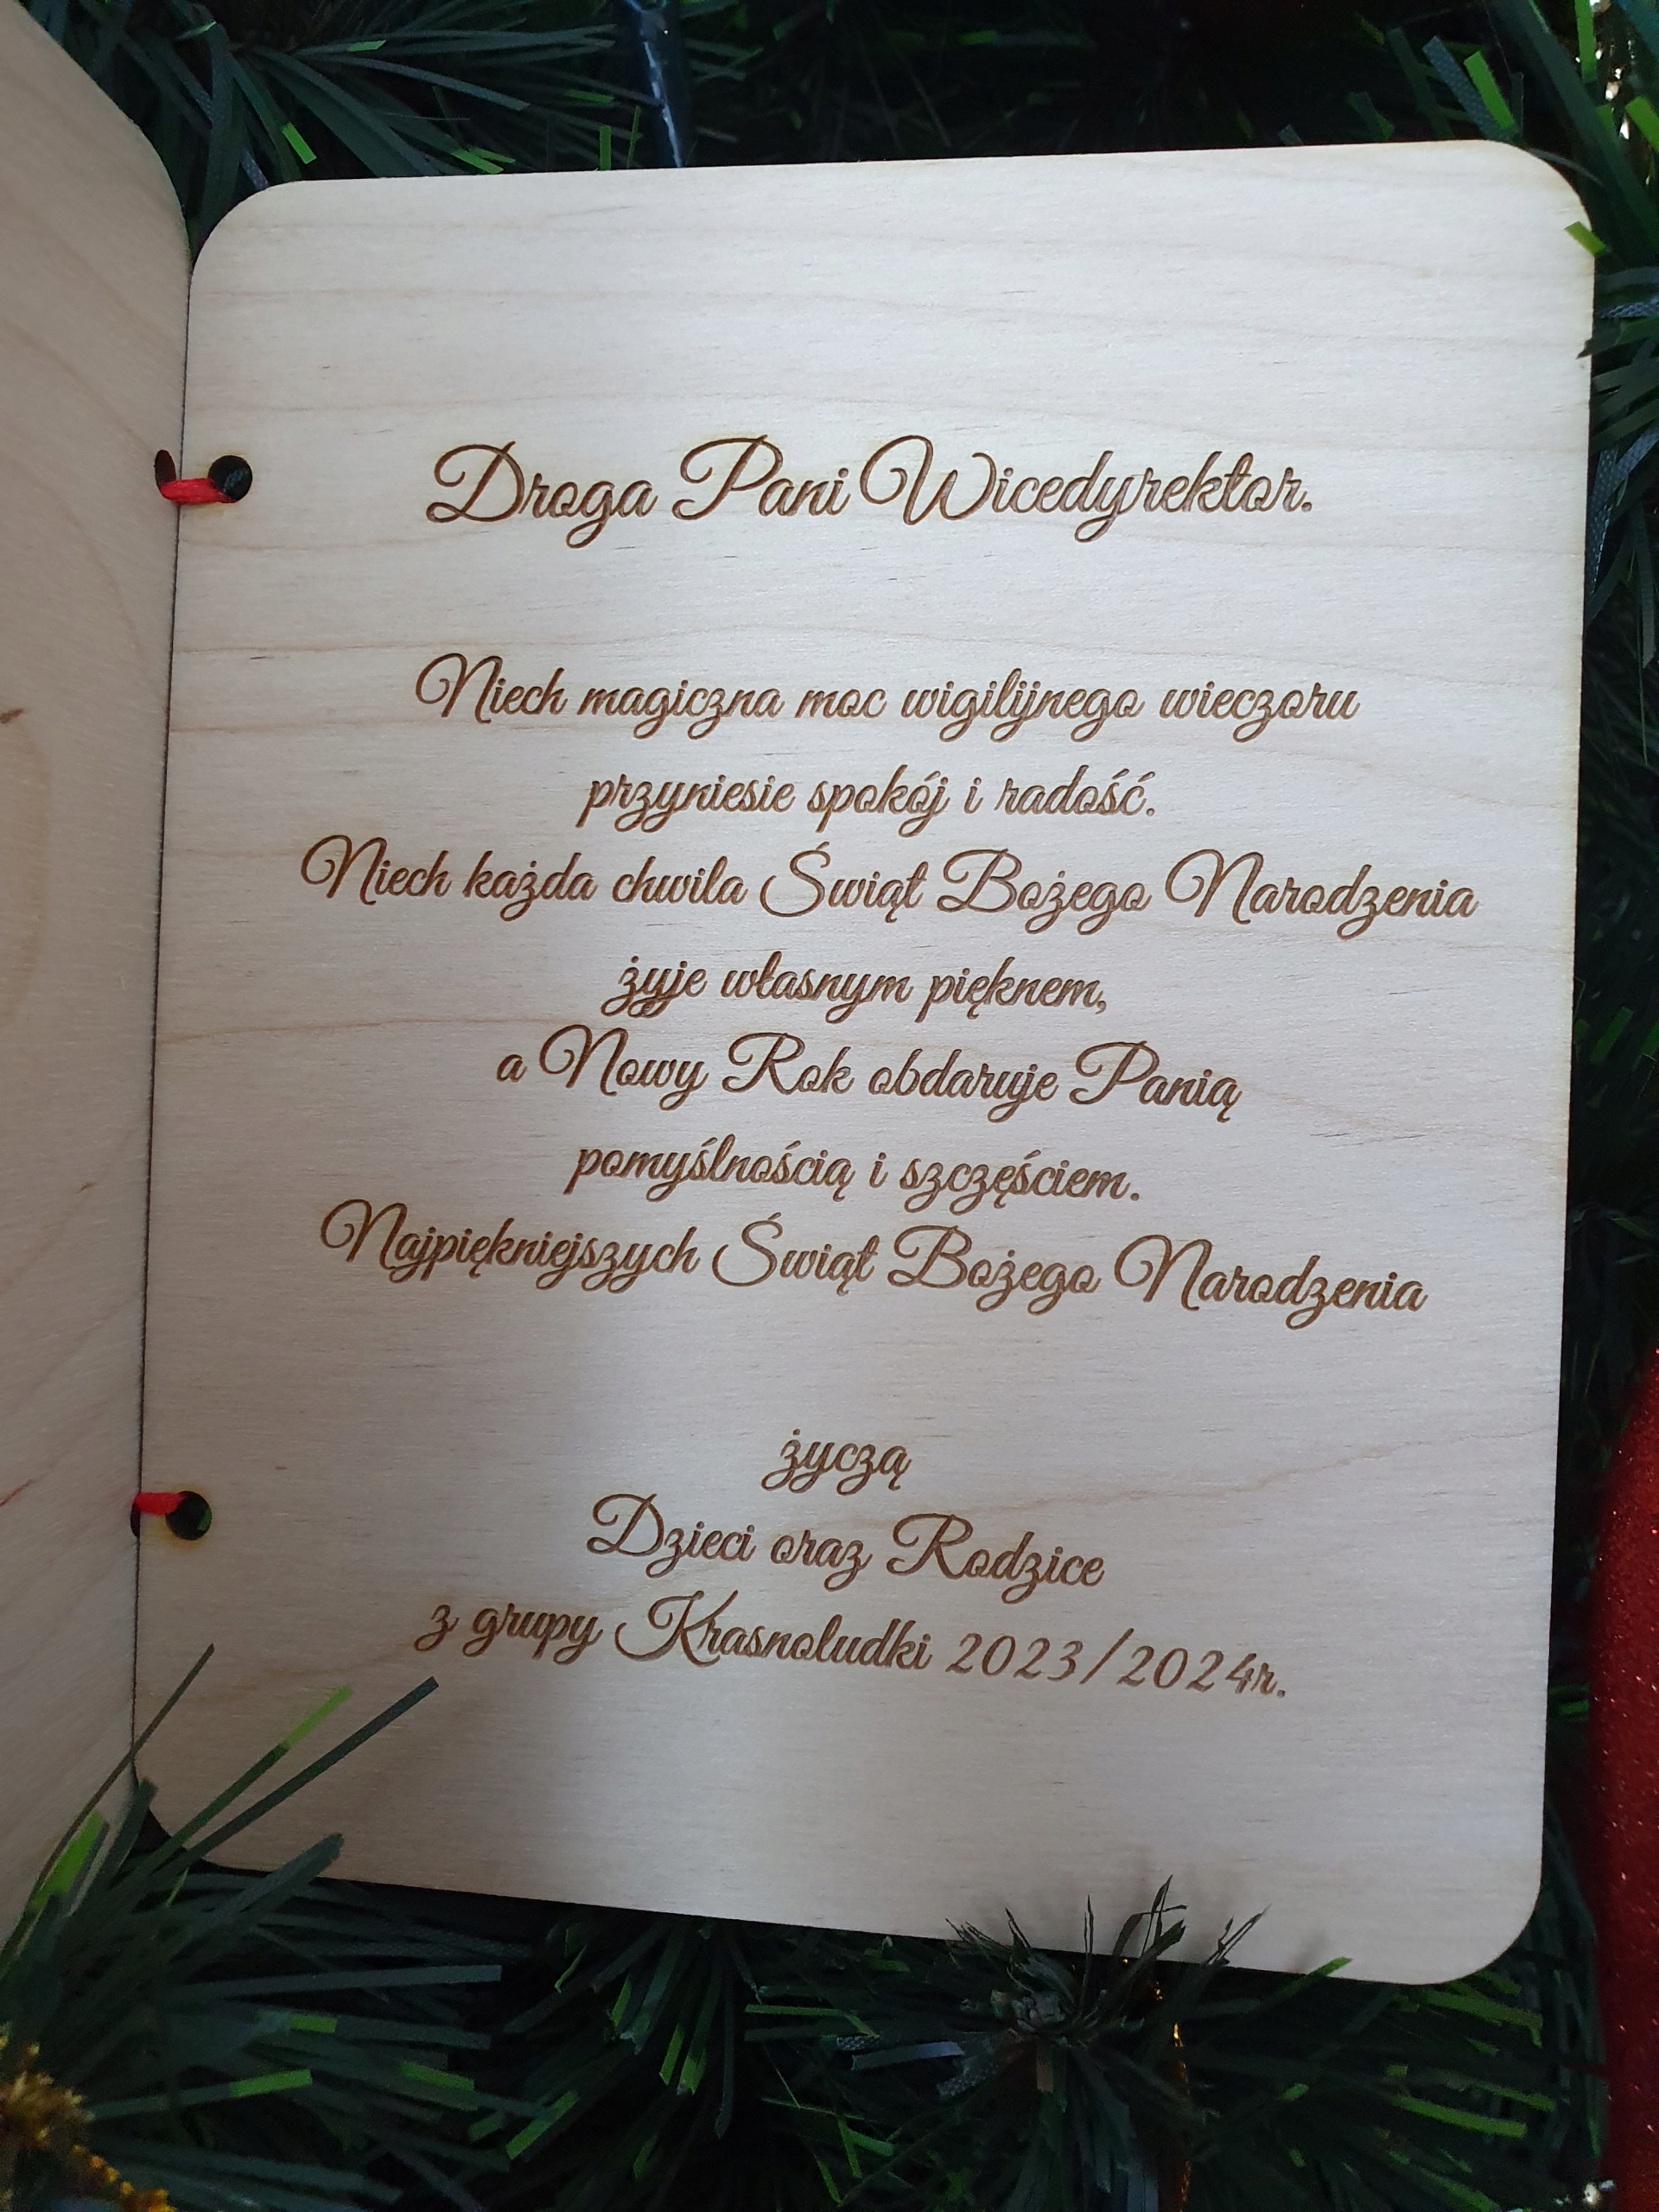 Droga Pani Wicedyrektor.
Niech magiczna moc wigilijnego wieczoru
przyniesie spokój i radość.
Niech każda chwila Świąt Bożego Narodzenia
żyje własnym pięknem,
a Nowy Rok obdaruje Panią
pomyślnością i szczęściem.
Najpiękniejszych Świąt Bożego Narodzenia
życzą
Dzieci oraz Rodzice
z grupy Krasnoludki 2023/2024r.